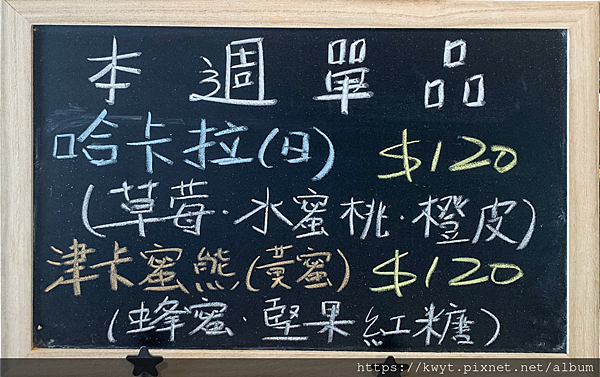 本週單品
哈卡拉(日) $120
(草莓·水蜜桃·橙皮)
津卡蜜熊(黃蜜) $120
(蜂蜜·堅果紅糖)
https://kwyt.pixnet.net/album